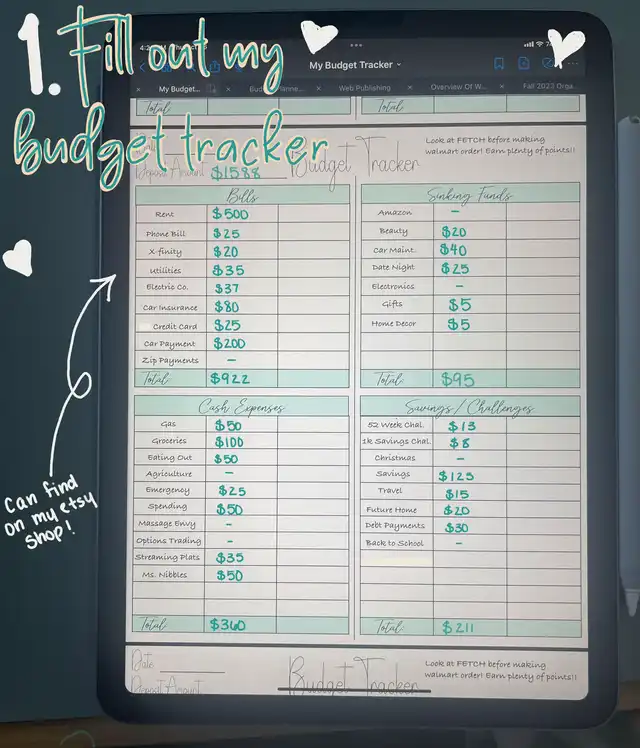 1. Fill out my
budget tracker
My Budget Tracker
My Budget...
Web Publishing
Overview Of W...
Fall 2023 Orga...
Total
Total
Look at FETCH before making
walmart order! Earn plenty of points!!
Budget Tracker
Deposit Amount $1588
Bills
Rent $500
Phone Bill $25
X-finity $20
Utilities $35
Electric Co. $37
Car Insurance $80
Credit Card $25
Car Payment $200
Zip Payments –
Total $922
Sinking Funds
Amazon –
Beauty $20
Car Maint. $40
Date Night $25
Electronics –
Gifts $5
Home Decor $5
Total $95
Cash Expenses
Gas $50
Groceries $100
Eating Out $50
Agriculture –
Emergency $25
Spending $50
Massage Envy -
Options Trading -
Streaming Plats $35
Ms. Nibbles $50
Total $360
Savings / Challenges
52 Week Chal. $13
1k Savings Chal. $8
Christmas –
Savings $125
Travel $15
Future Home $20
Debt Payments $30
Back to School –
Total $211
can find
on my etsy
shop!
Date
Deposit Amount
Budget Tracker
Look at FETCH before making
walmart order! Earn plenty of points!!